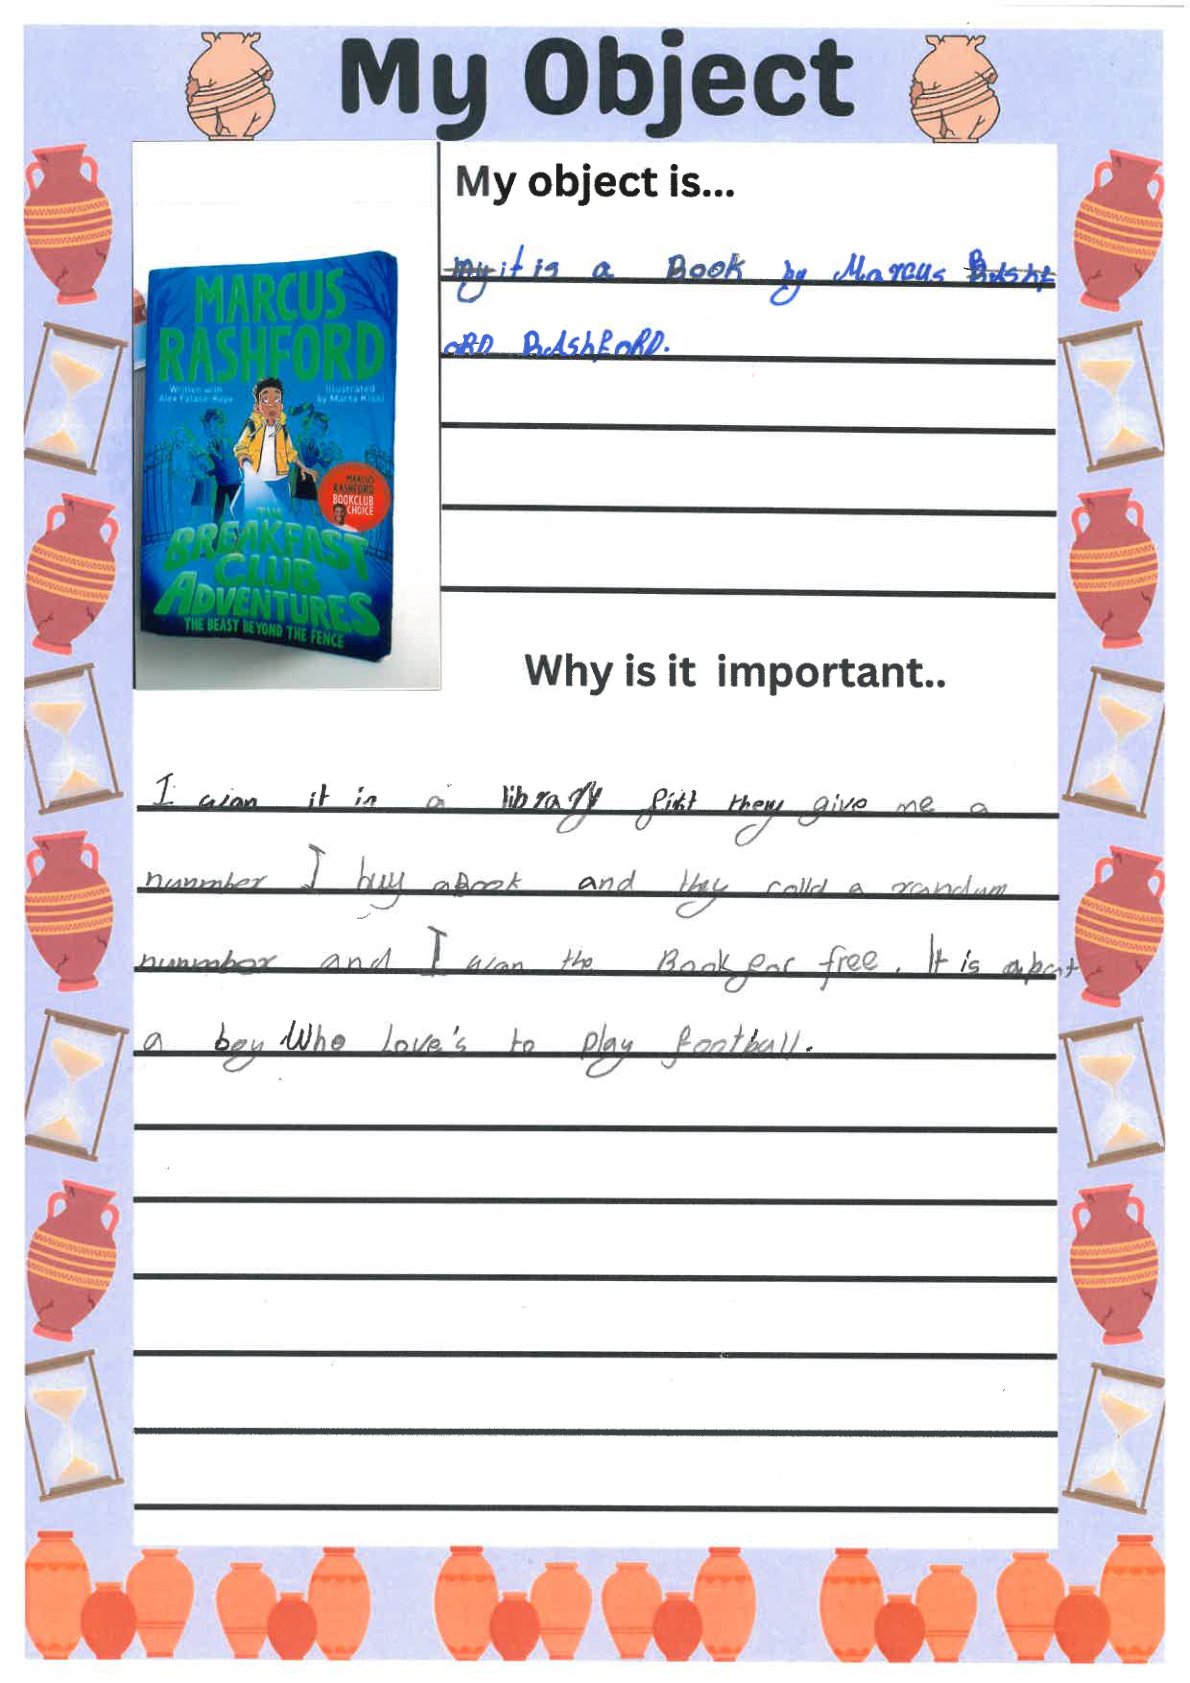 My Object
My object is...
MARCUS
RASHFORD
Written with
Alex Falase-Koya
Illustrated
by Marta Kissi
MARCUS
RASHFORD
BOOKCLUB
CHOICE
THE
BREAKFAST
CLUB
ADVENTURES
THE BEAST BEYOND THE FENCE
My it is a Book by Marcus
ORD RASHFORD.
Why is it important..
I wan it in a library fist they give me a
nunmber I buy a Book and they colld a randum
nunmber and I wan the Book for free. It is about
a boy Who Love's to play football.